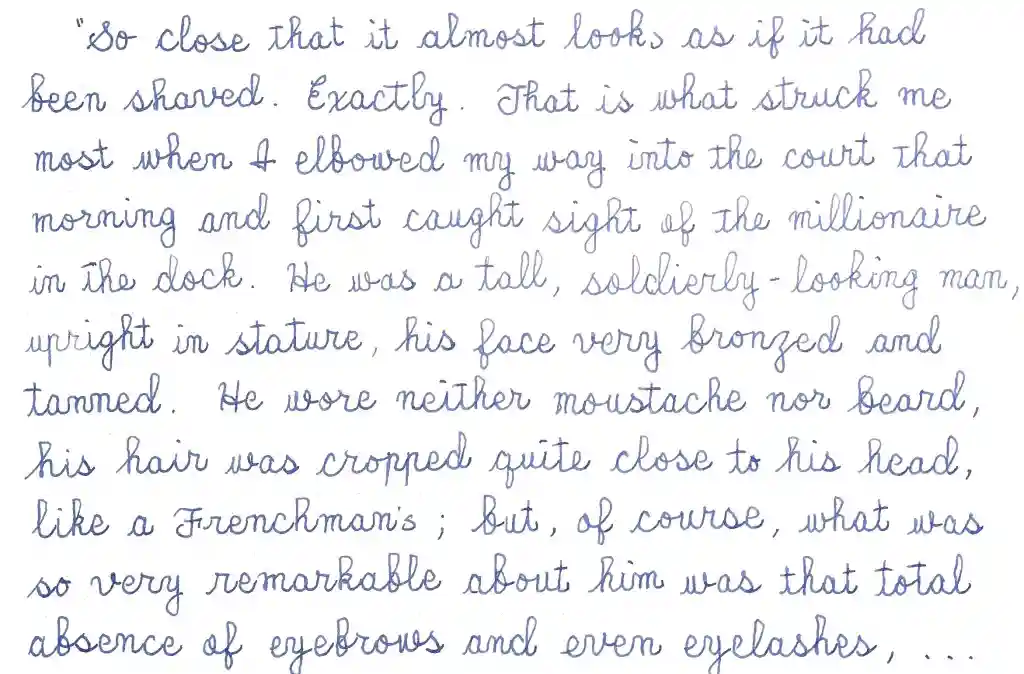 "So close that it almost looks as if it had
been shaved. Exactly. That is what struck me
most when I elbowed my way into the court that
morning and first caught sight of the millionaire
in the dock. He was a tall, soldierly-looking man,
upright in stature, his face very bronzed and
tanned. He wore neither moustache nor beard,
his hair was cropped quite close to his head,
like a Frenchman's; but, of course, what was
so very remarkable about him was that total
absence of eyebrows and even eyelashes, ...